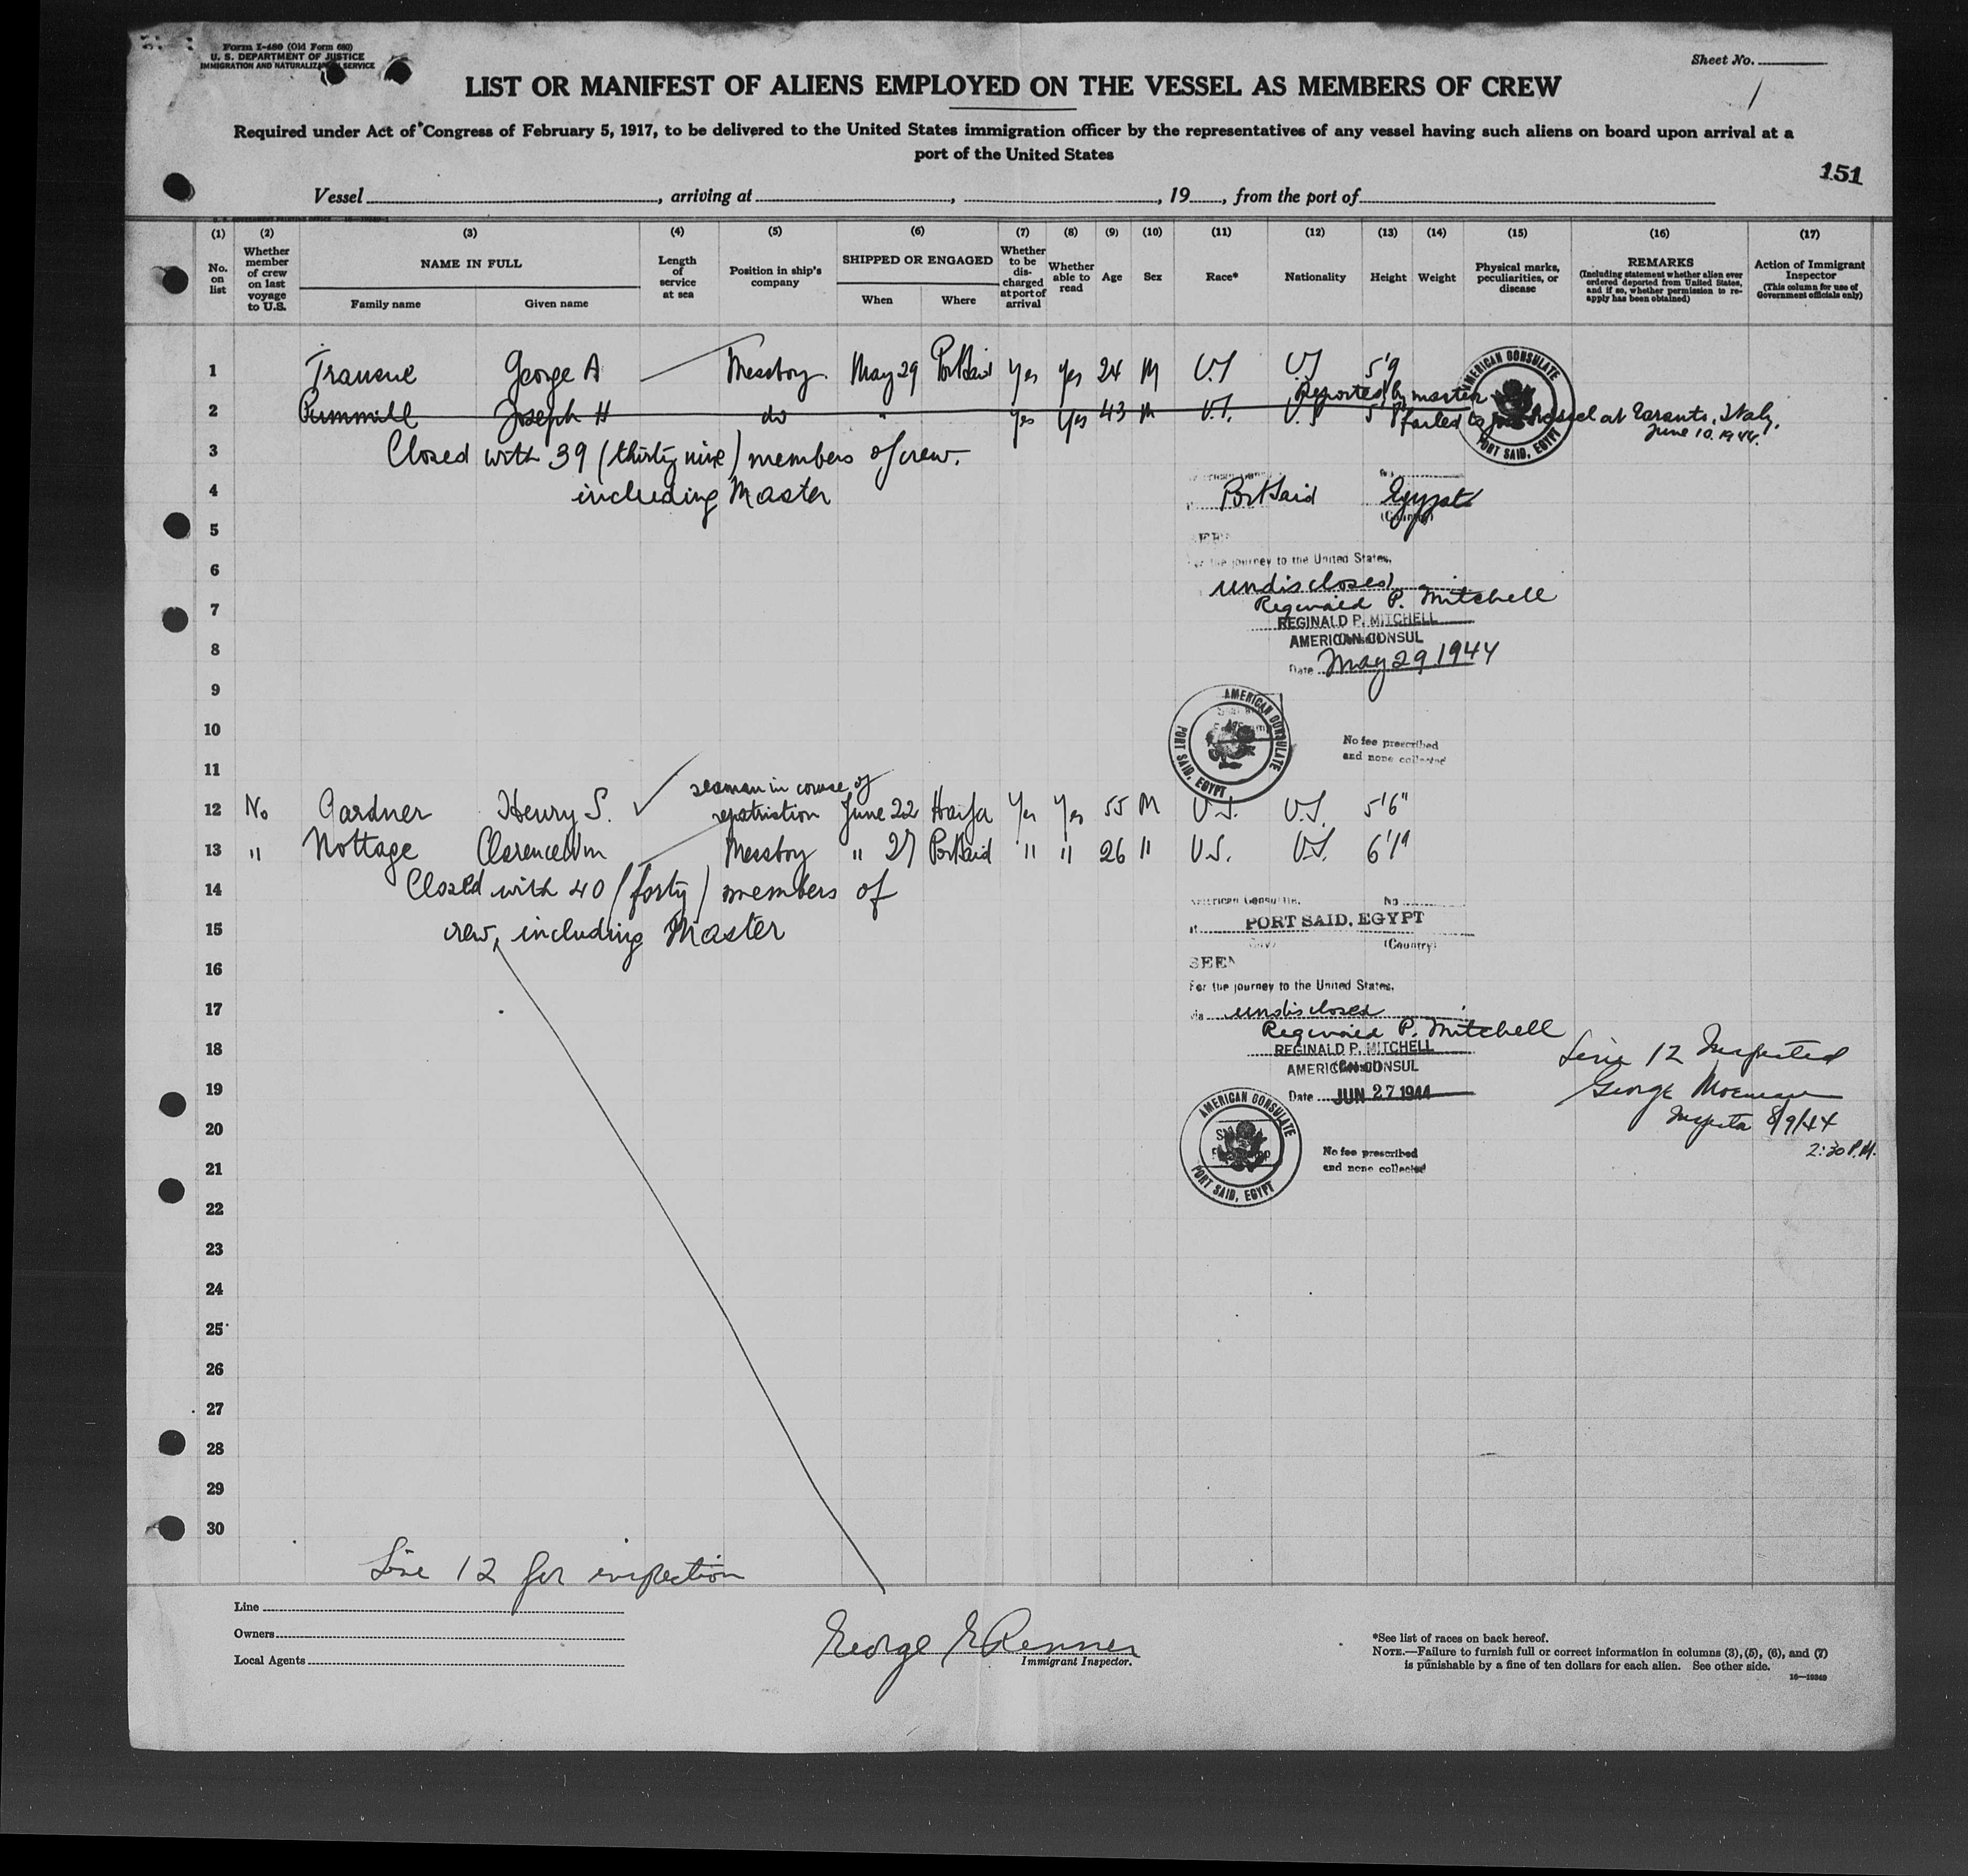 Form I-480 (Old Form 680)
U. S. DEPARTMENT OF JUSTICE
IMMIGRATION AND NATURALIZATION SERVICE
Sheet No.
1
LIST OR MANIFEST OF ALIENS EMPLOYED ON THE VESSEL AS MEMBERS OF CREW
Required under Act of Congress of February 5, 1917, to be delivered to the United States immigration officer by the representatives of any vessel having such aliens on board upon arrival at a
port of the United States
151
Vessel , arriving at , , 19 , from the port of
(1) (2) (3) (4) (5) (6) (7) (8) (9) (10) (11) (12) (13) (14) (15) (16) (17)
No. on list
Whether member of crew on last voyage to U.S.
NAME IN FULL
Family name Given name
Length of service at sea
Position in ship's company
SHIPPED OR ENGAGED
When Where
Whether to be discharged at port of arrival
Whether able to read
Age
Sex
Race*
Nationality
Height
Weight
Physical marks, peculiarities, or disease
REMARKS
(Including statement whether alien ever ordered deported from United States, and if so, whether permission to re-apply has been obtained)
Action of Immigrant Inspector
(This column for use of Government officials only)
1 Transue George A Messboy May 29 PortSaid Yes Yes 24 M U.S U.S 5'9
AMERICAN CONSULATE
PORT SAID, EGYPT
Reported by master
2 Pummill Joseph H do " Yes Yes 43 M U.S. U.S
failed to join vessel at Taranto, Italy,
June 10, 1944.
3 Closed with 39 (thirty nine) members of crew.
4 including Master
Port Said Egypt
(Country)
5
6 For the journey to the United States,
undisclosed
7 Reginald P. Mitchell
REGINALD P. MITCHELL
AMERICAN CONSUL
8 Date May 29 1944
9
AMERICAN CONSULATE
PORT SAID, EGYPT
10 No fee prescribed
and none collected
11
seaman in course of
12 No Gardner Henry S. repatriation June 22 Haifa Yes Yes 55 M U.S. U.S. 5'6"
13 " Nottage Clarence Wm Messboy " 27 PortSaid " " 26 " U.S. U.S. 6'1"
14 Closed with 40 (forty) members of
American Consulate, No
15 crew, including Master
PORT SAID, EGYPT
(Country)
16 SEEN
For the journey to the United States,
17 via undisclosed
Reginald P. Mitchell
18 REGINALD P. MITCHELL
AMERICAN CONSUL
Line 12 Inspected
19 Date JUN 27 1944
George
AMERICAN CONSULATE
PORT SAID, EGYPT
20 8/9/44
2:30 P.M.
21 No fee prescribed
and none collected
22
23
24
25
26
27
28
29
30
Line 12 for inspection
Line
Owners
Local Agents
George E Renner
Immigrant Inspector.
*See list of races on back hereof.
NOTE.—Failure to furnish full or correct information in columns (3), (5), (6), and (7)
is punishable by a fine of ten dollars for each alien. See other side.
16—19349